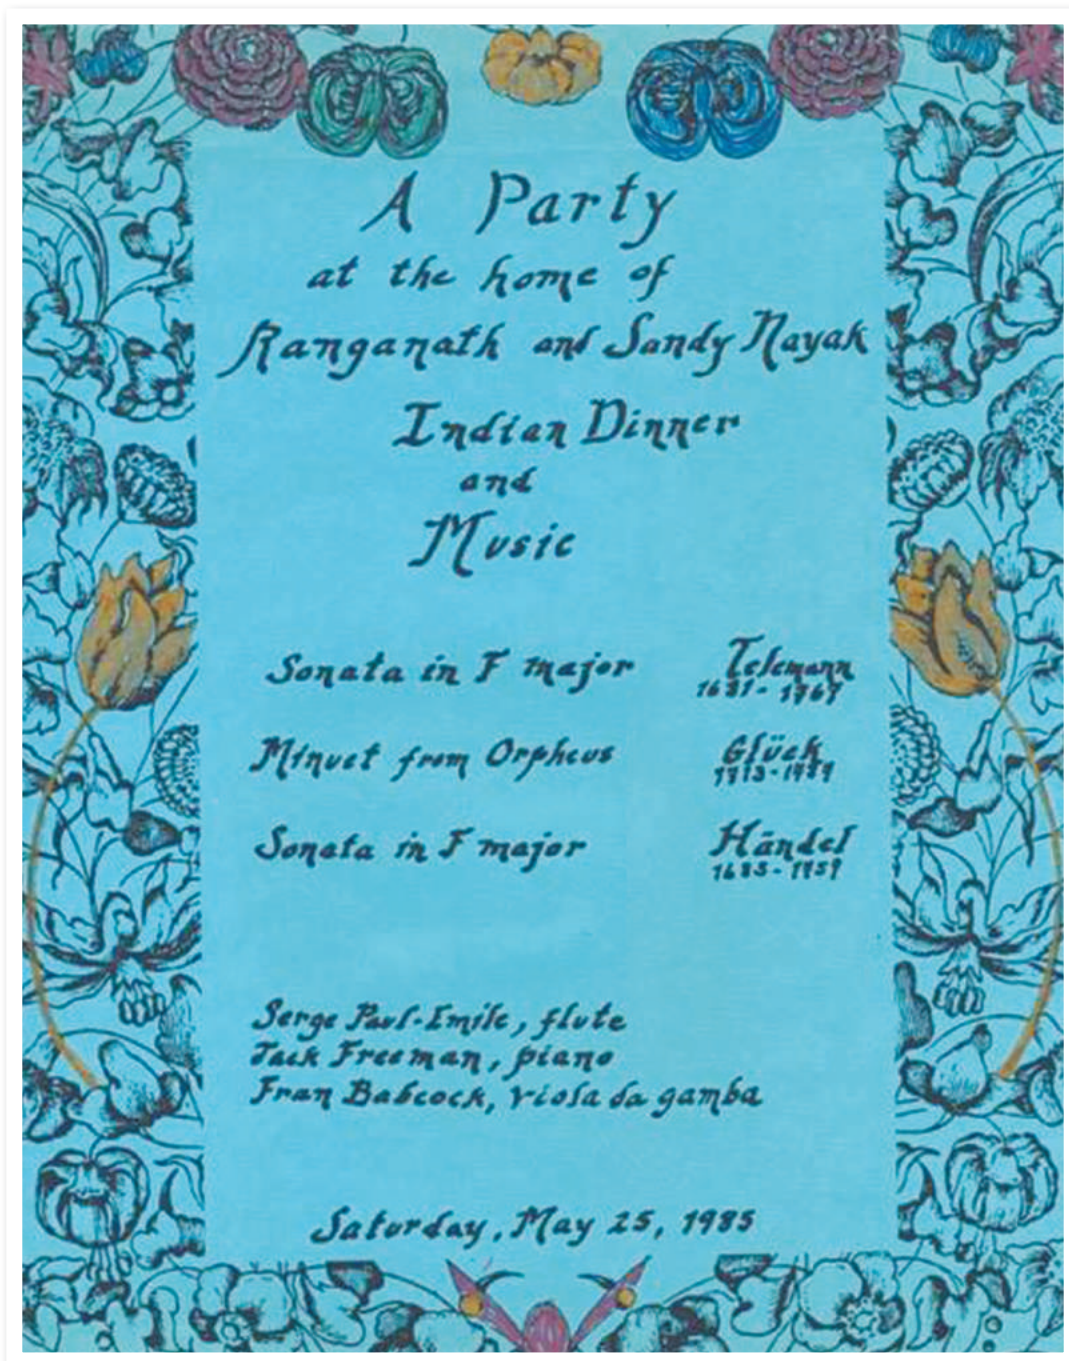 A Party
at the home of
Ranganath and Sandy Nayak
Indian Dinner
and
Music
Sonata in F major Telemann
1681-1767
Minuet from Orpheus Glück
1713-1787
Sonata in F major Händel
1685-1759
Serge Paul-Emile, flute
Jack Freeman, piano
Fran Babcock, viola da gamba
Saturday, May 25, 1985